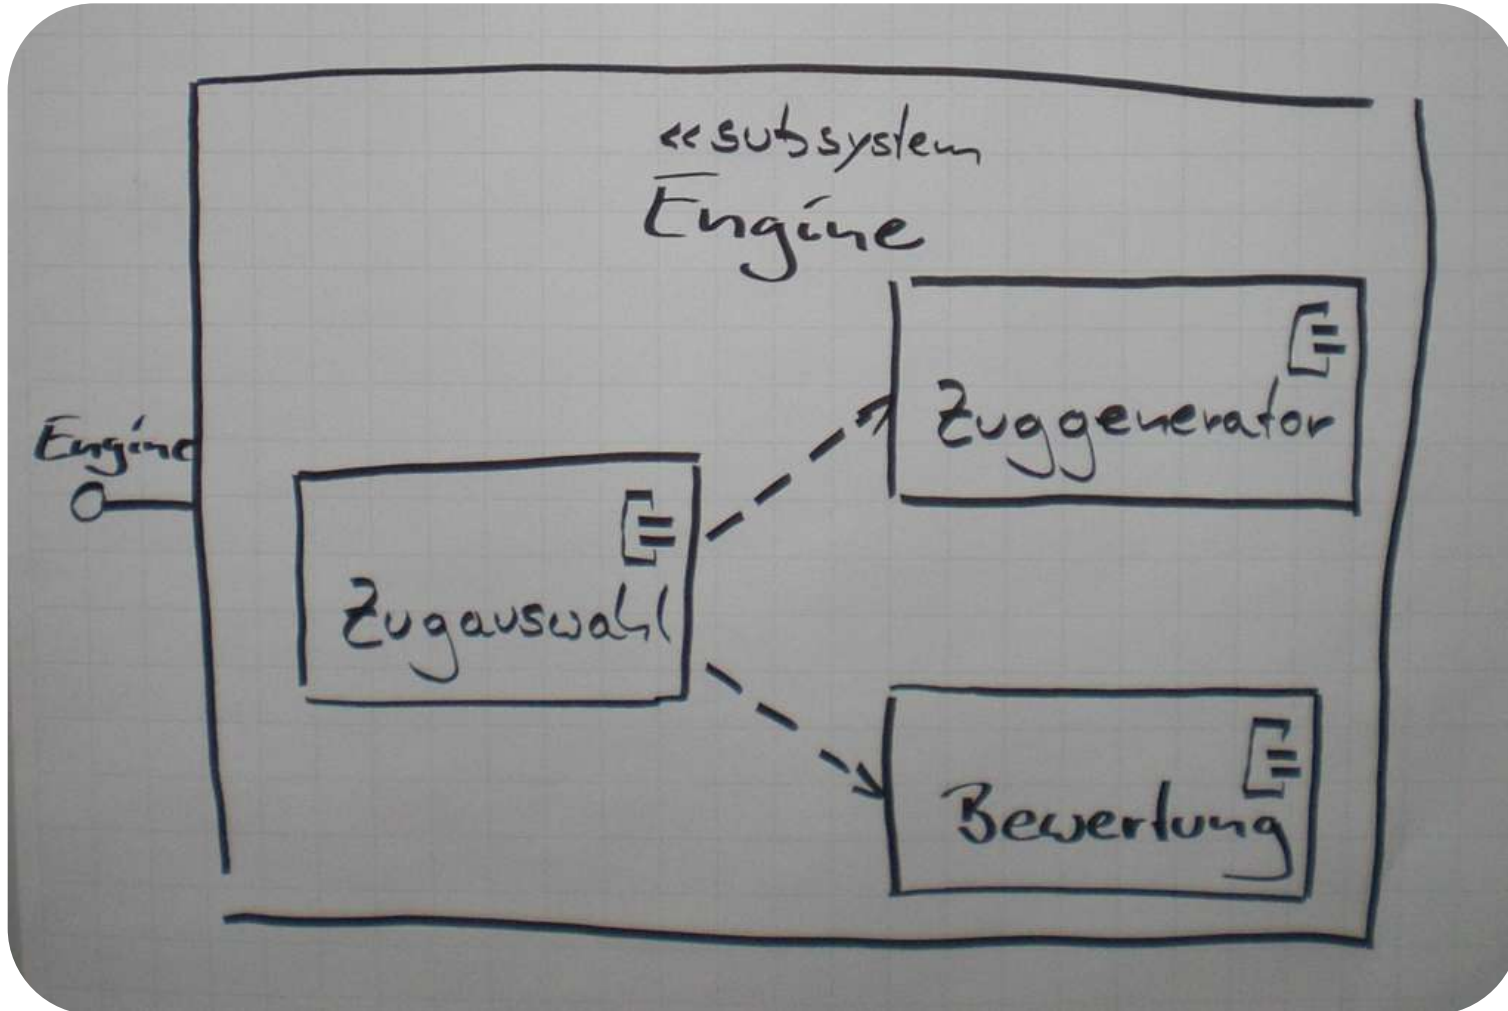 «subsystem
Engine
Engine
Zuggenerator
Zugauswahl
Bewertung